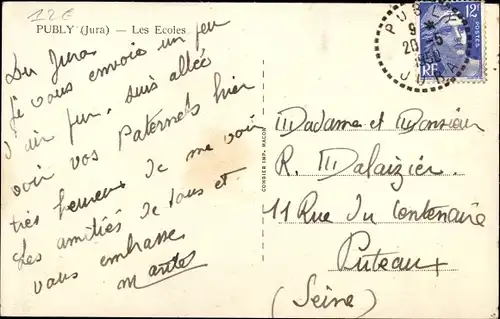 12€
PUBLY (Jura) — Les Ecoles
Du Jura
Je vous envoie un peu
d'air pur, suis allée
voir vos Paternels hier
très heureux de me voir
Les amitiés de tous et
vous embrasse
PUBLY
9 *
20-5
1950
JURA
12F
POSTES
RF
COMBIER IMP. MACON
Madame et Monsieur
R. Malaizier
11 Rue du Centenaire
Puteaux
(Seine)